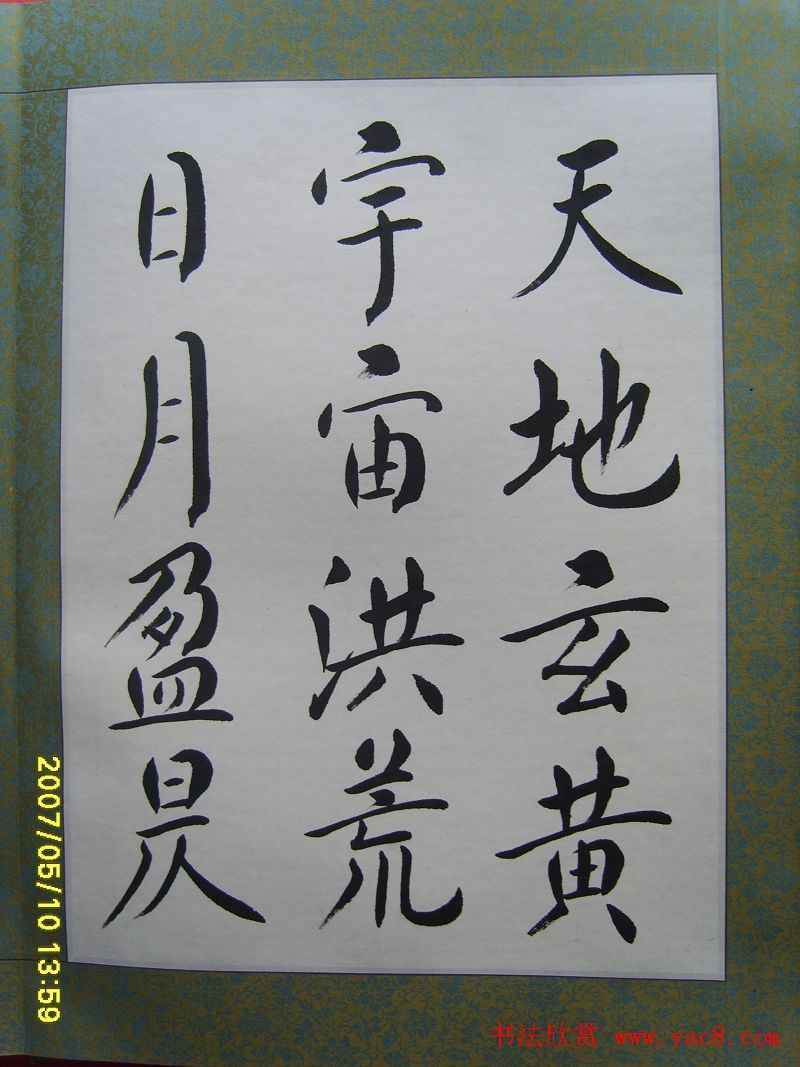 天地玄黄
宇宙洪荒
日月盈昃
2007/05/10 13:59
书法欣赏 www.yac8.com